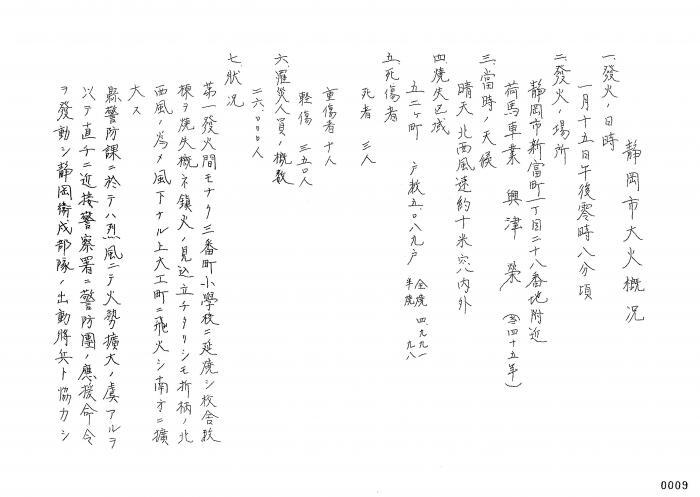 靜岡市大火概況
一、發火ノ日時
一月十五日午後零時八分頃
二、發火ノ場所
靜岡市新富町一丁目二十八番地附近
荷馬車業 興津榮 (當四十五年)
三、當時ノ天候
晴天 北西風速約十米突內外
四、燒失區域
五二ヶ町 戶數五、〇八九戶 全燒 四、九九一 半燒 九八
五、死傷者
死者 三人
重傷者 十人
輕傷 三五〇人
六、罹災人員ノ概數
二六、〇〇〇人
七、狀況
第一發火間モナク三番町小學校ニ延燒シ校舍數
棟ヲ燒失概ネ鎮火ノ見込立チタリシモ折柄ノ北
西風ノ爲メ風下ナル上大工町ニ飛火シ南方ニ擴
大ス
縣警防課ニ於テハ烈風ニテ火勢擴大ノ虞アルヲ
以テ直チニ近接警察署ニ警防團ノ應援命令
ヲ發動シ靜岡衞戍部隊ノ出動將兵ト協力シ
0009